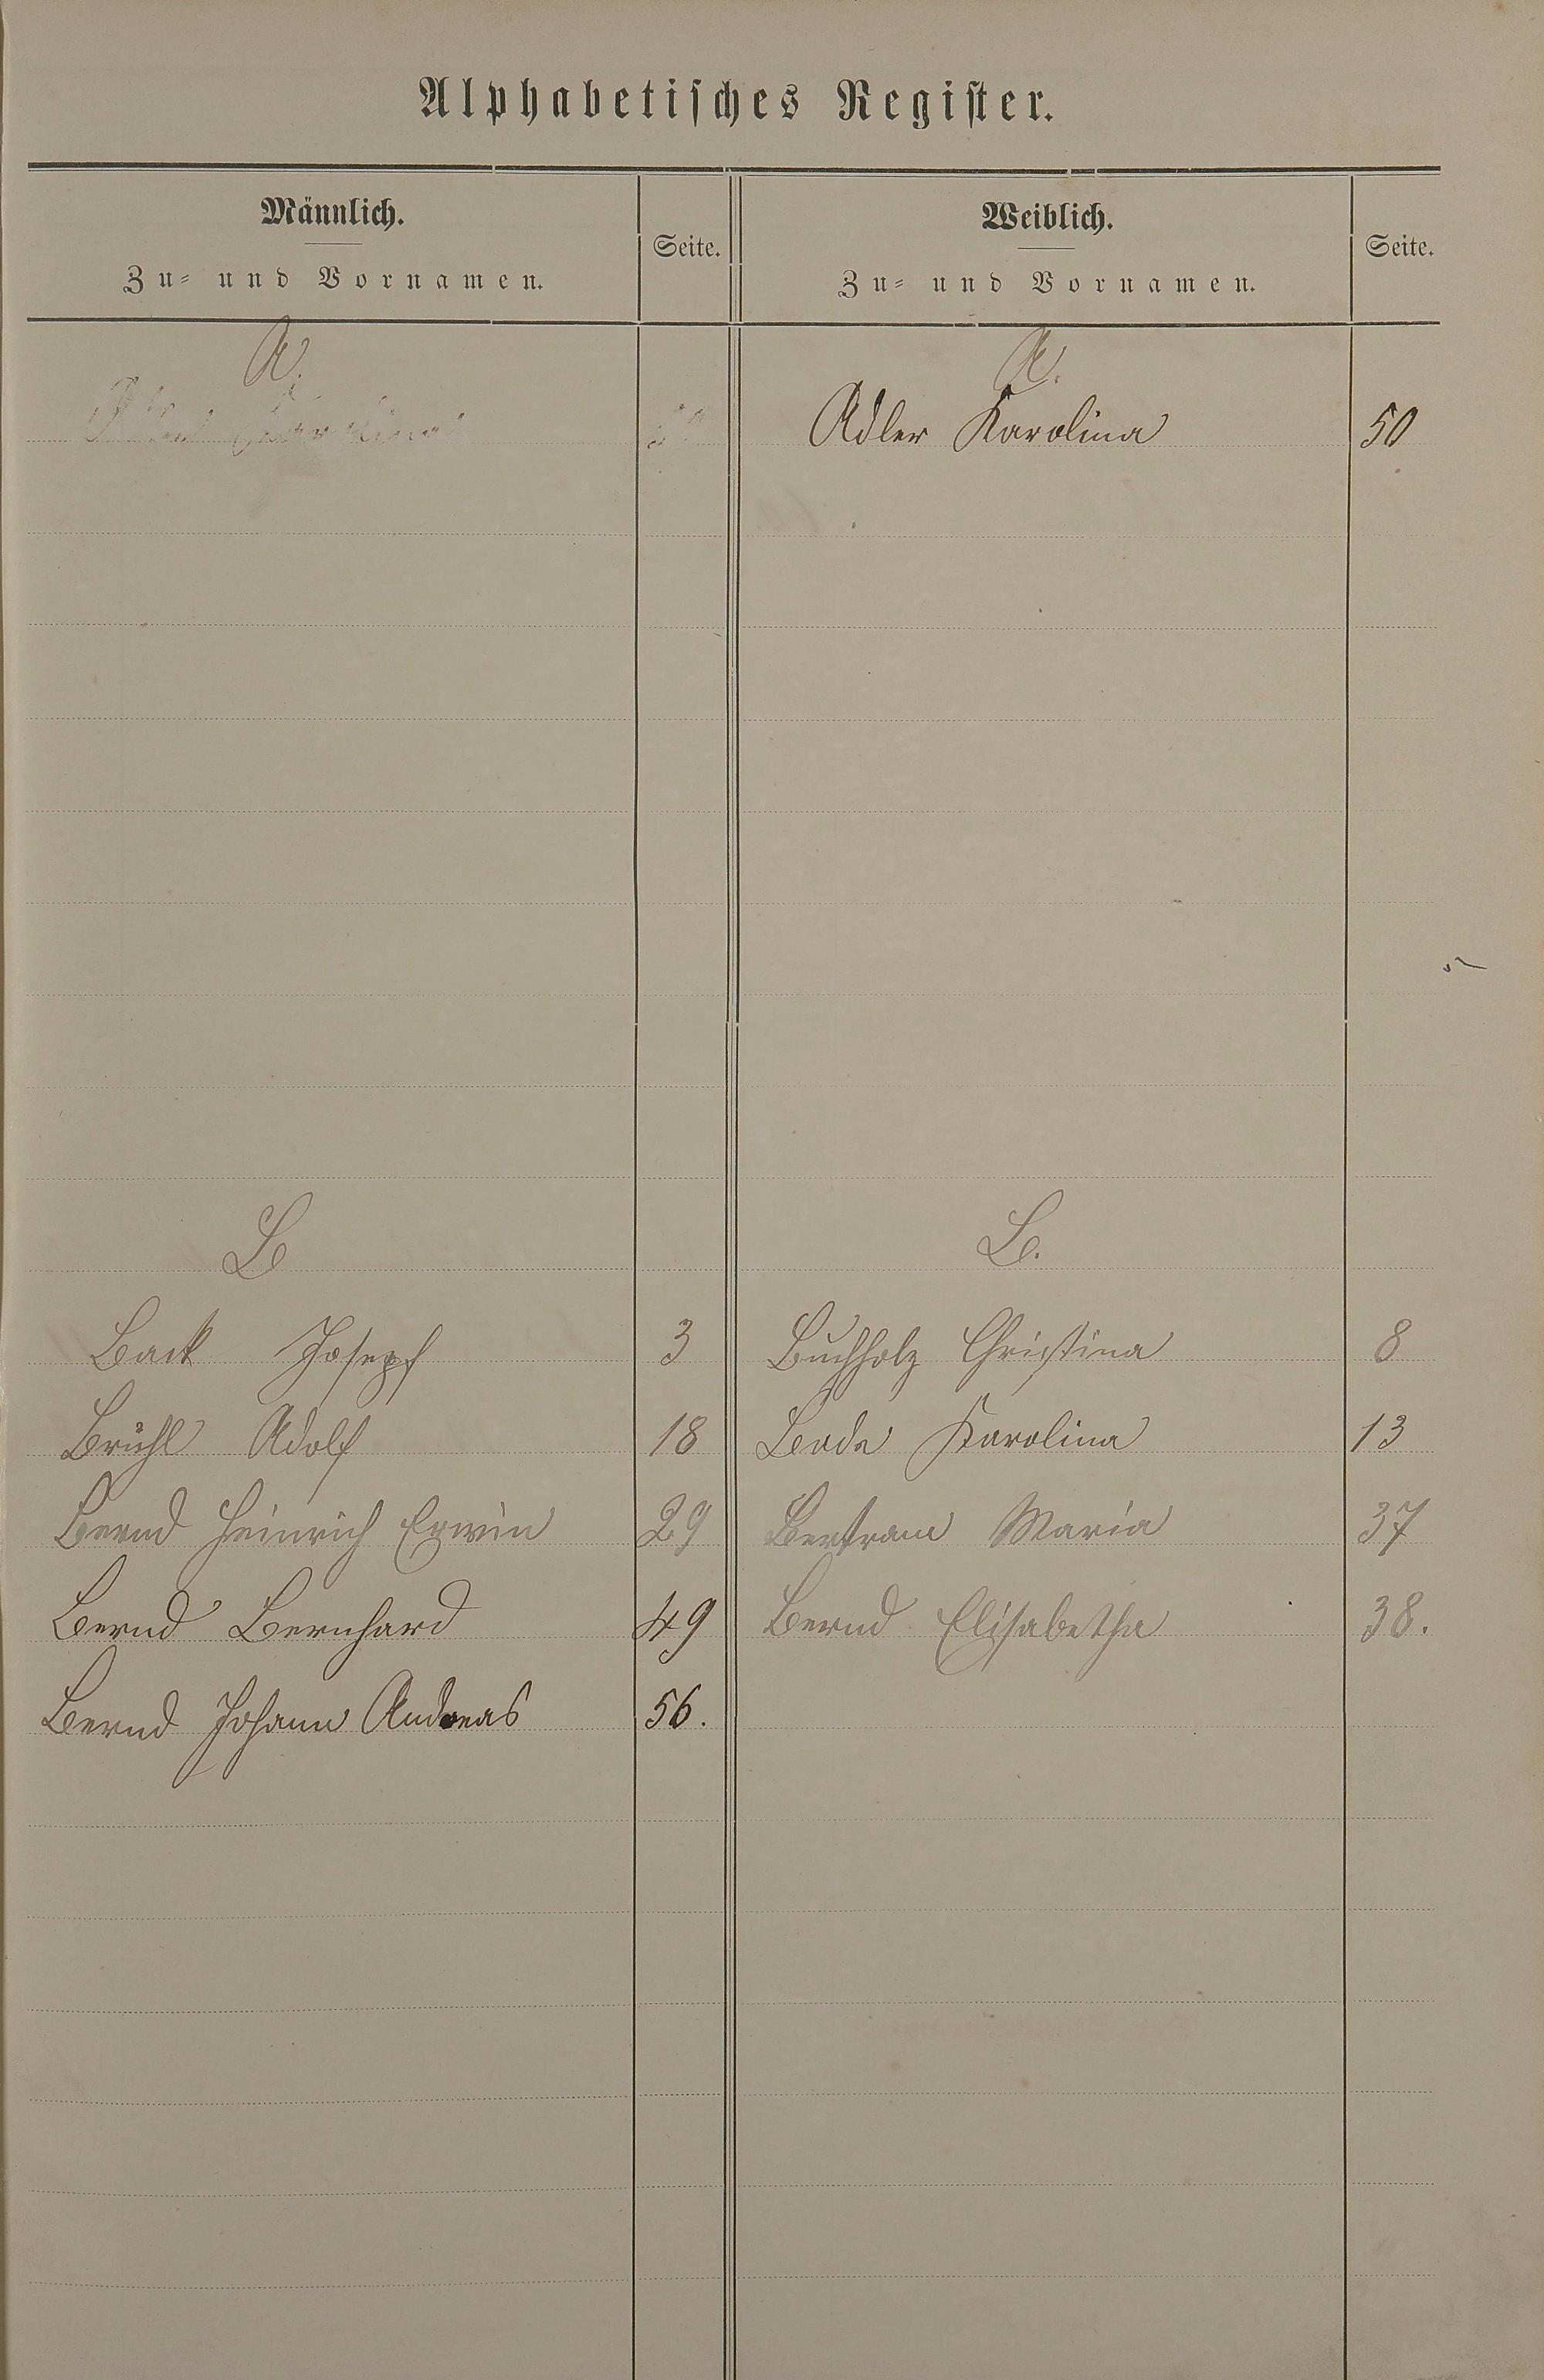 Alphabetisches Register.
Männlich.
Zu- und Vornamen.
Seite.
Weiblich.
Zu- und Vornamen.
Seite.
A.
A.
Adler Karolina 50
B
B.
Back Josepf 3
Buchholz Christina 8
Brühl Adolf 18
Bode Karolina 13
Bernd Heinrich Erwin 29
Bertram Maria 37
Bernd Bernhard 49
Bernd Elisabetha 38.
Bernd Johann Andreas 56.